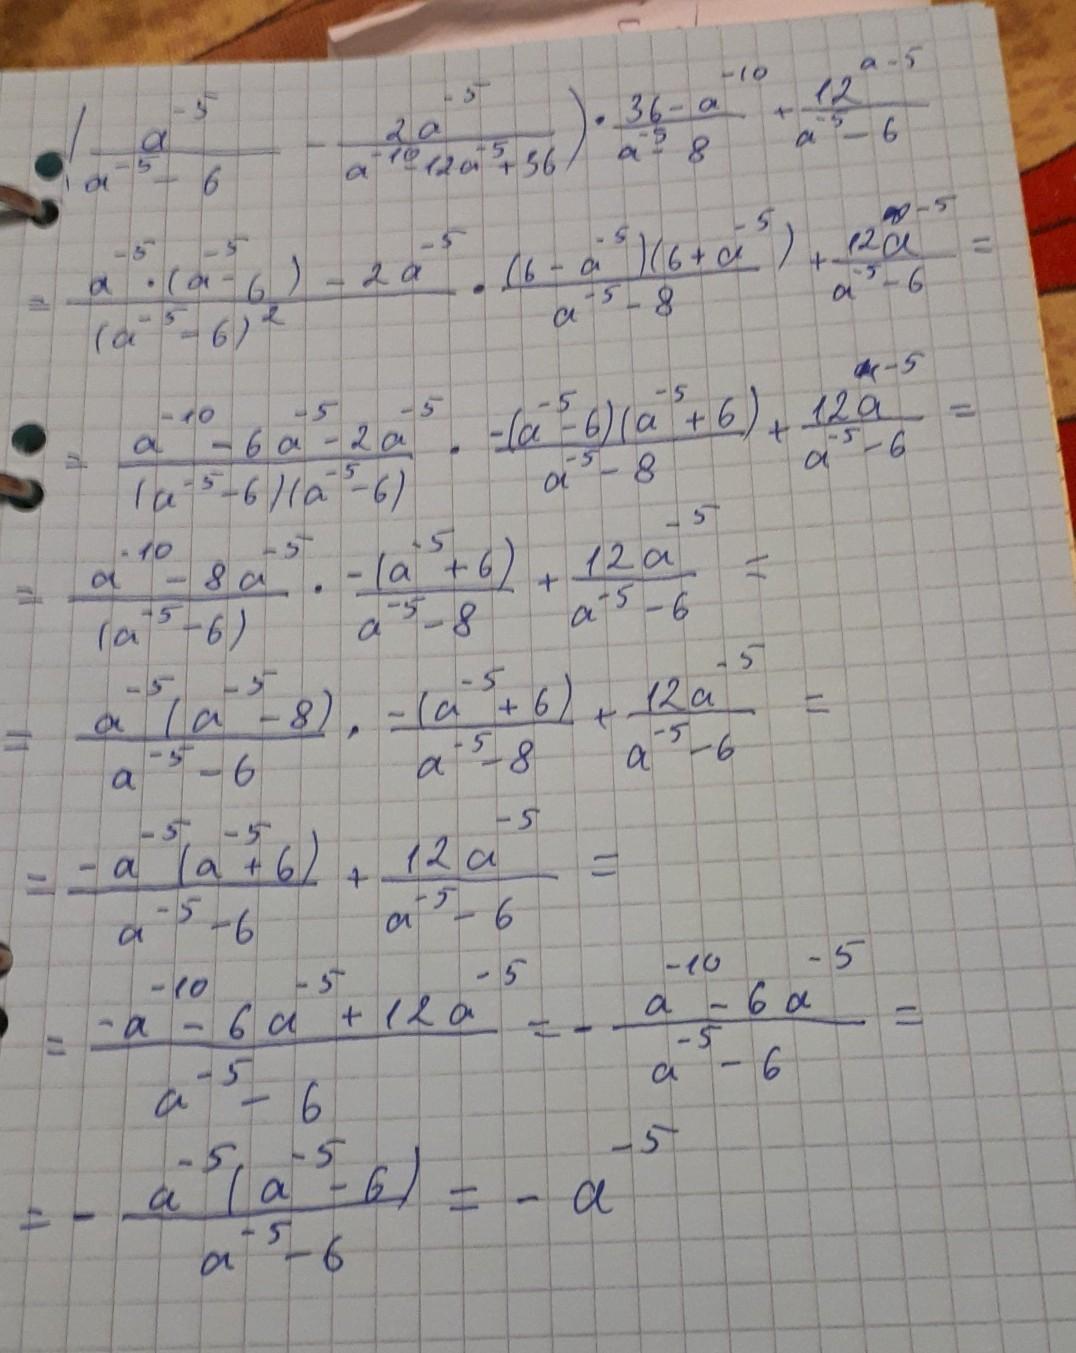 (a⁻⁵/(a⁻⁵ - 6) - 2a⁻⁵/(a⁻¹⁰ - 12a⁻⁵ + 36)) · (36 - a⁻¹⁰)/(a⁻⁵ - 8) + 12^(a-5)/(a⁻⁵ - 6)
= (a⁻⁵ · (a⁻⁵ - 6) - 2a⁻⁵)/(a⁻⁵ - 6)² · (6 - a⁻⁵)(6 + a⁻⁵)/(a⁻⁵ - 8) + 12a⁻⁵/(a⁻⁵ - 6) =
= (a⁻¹⁰ - 6a⁻⁵ - 2a⁻⁵)/((a⁻⁵ - 6)(a⁻⁵ - 6)) · -(a⁻⁵ - 6)(a⁻⁵ + 6)/(a⁻⁵ - 8) + 12a⁻⁵/(a⁻⁵ - 6) =
= (a⁻¹⁰ - 8a⁻⁵)/(a⁻⁵ - 6) · -(a⁻⁵ + 6)/(a⁻⁵ - 8) + 12a⁻⁵/(a⁻⁵ - 6) =
= a⁻⁵(a⁻⁵ - 8)/(a⁻⁵ - 6) · -(a⁻⁵ + 6)/(a⁻⁵ - 8) + 12a⁻⁵/(a⁻⁵ - 6) =
= -a⁻⁵(a⁻⁵ + 6)/(a⁻⁵ - 6) + 12a⁻⁵/(a⁻⁵ - 6) =
= (-a⁻¹⁰ - 6a⁻⁵ + 12a⁻⁵)/(a⁻⁵ - 6) = - (a⁻¹⁰ - 6a⁻⁵)/(a⁻⁵ - 6) =
= - a⁻⁵(a⁻⁵ - 6)/(a⁻⁵ - 6) = - a⁻⁵